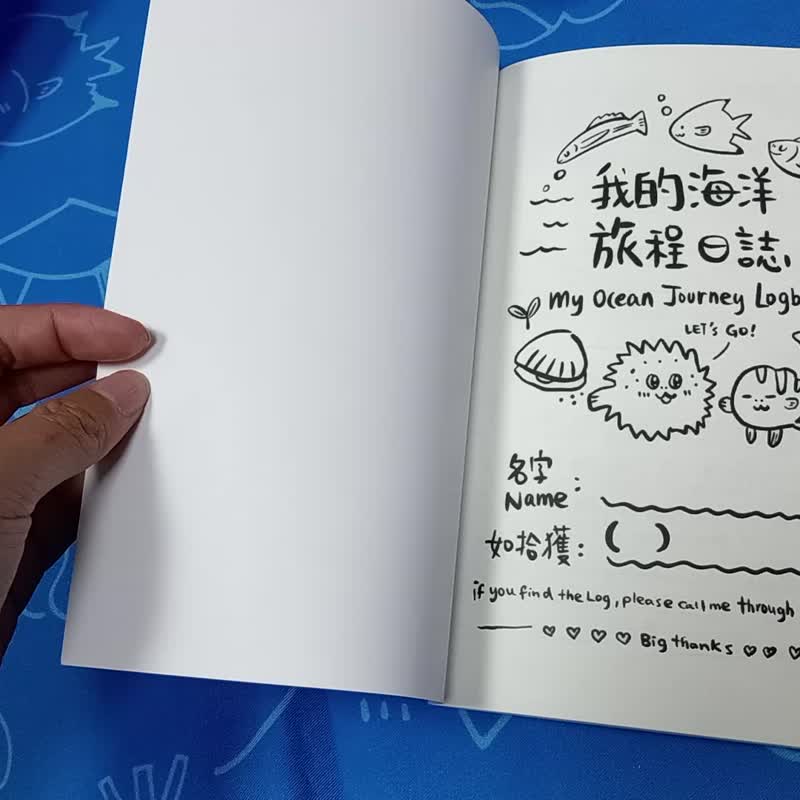 我的海洋
旅程日誌
My Ocean Journey Logb
LET'S GO!
名字
Name :
如拾獲: ( )
if you find the Log, please call me through
Big thanks